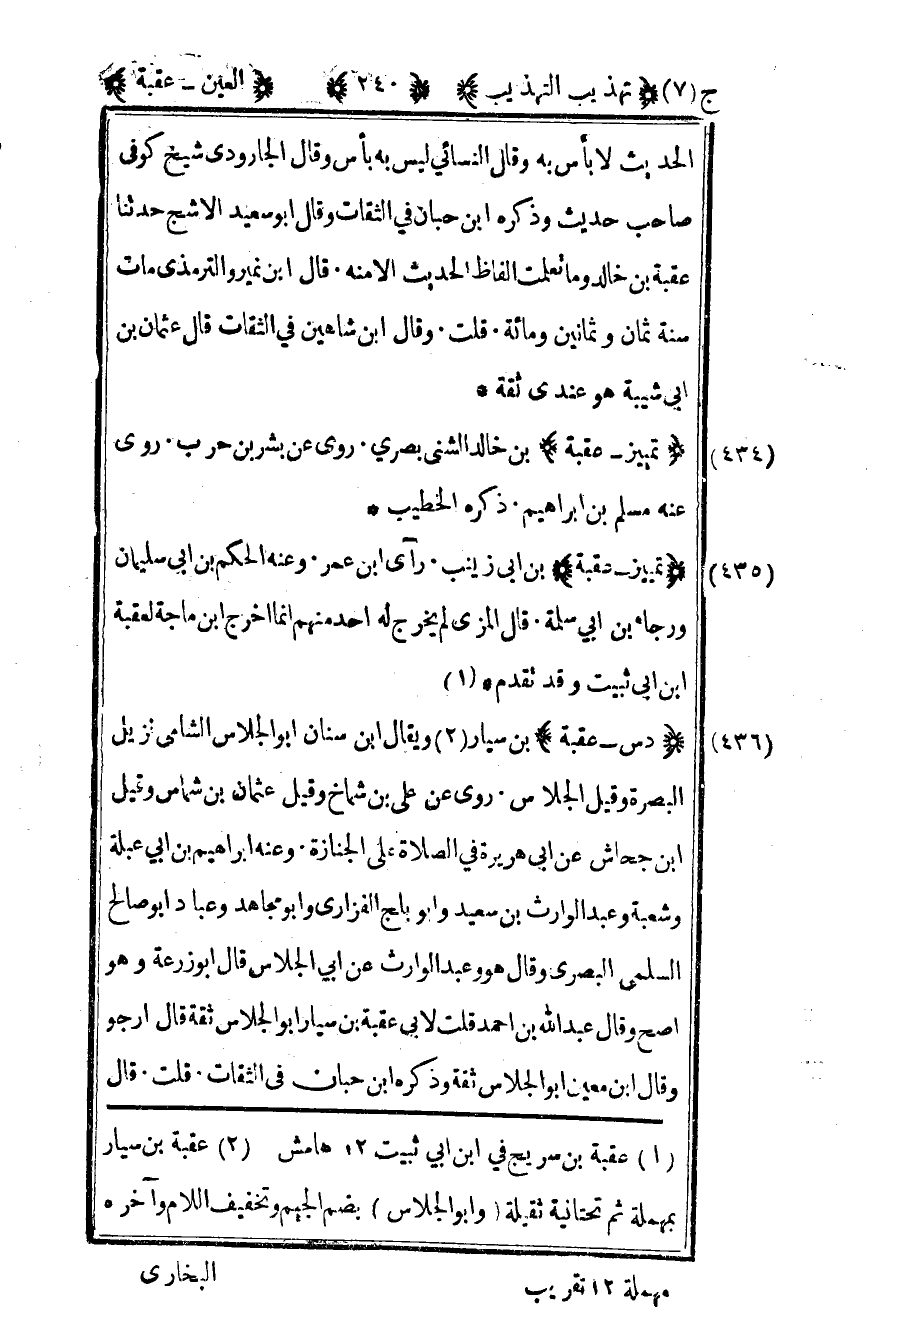 ج(٧) ﴿ تهذيب التهذيب ﴾ ﴿ ٢٤٠ ﴾ ﴿ العين ـ عقبة ﴾
الحديث لا بأس به وقال النسائي ليس به بأس وقال الجارودى شيخ كوفى
صاحب حديث وذكره ابن حبان في الثقات وقال ابو سعيد الاشج حدثنا
عقبة بن خالد وما تعلمت الفاظ الحديث الامنه ٠ قال ابن نمير والترمذى مات
سنة ثمان و ثمانين ومائة ٠ قلت ٠ وقال ابن شاهين في الثقات قال عثمان بن
ابي شيبة هو عندى ثقة *
(٤٣٤) ﴿ تمييز ـ عقبة ﴾ بن خالد الشنى بصري ٠ روى عن بشر بن حرب ٠ روى
عنه مسلم بن ابراهيم ٠ ذكره الخطيب *
(٤٣٥) ﴿ تمييز ـ عقبة ﴾ بن ابى زينب ٠ رآى ابن عمر ٠ وعنه الحكم بن ابى سليمان
ورجاء بن ابي سلمة ٠ قال المزى لم يخرج له احد منهم انما اخرج ابن ماجة لعقبة
ابن ابى ثبيت و قد تقدم * (١)
(٤٣٦) ﴿ دس ـ عقبة ﴾ بن سيار (٢) ويقال ابن سنان ابو الجلاس الشامى نزيل
البصرة وقيل الجلاس ٠ روى عن على بن شماخ وقيل عثمان بن شماس وقيل
ابن جحاش عن ابى هريرة في الصلاة على الجنازة ٠ وعنه ابراهيم بن ابي عبلة
وشعبة وعبد الوارث بن سعيد وابو بلج الفزارى وابو مجاهد وعباد ابو صالح
السلمى البصرى وقال هو وعبد الوارث عن ابي الجلاس قال ابو زرعة و هو
اصح وقال عبد الله بن احمد قلت لابى عقبة بن سيار ابو الجلاس ثقة قال ارجو
وقال ابن معين ابو الجلاس ثقة وذكره ابن حبان فى الثقات ٠ قلت ٠ قال
(١) عقبة بن سريج في ابن ابي ثبيت ١٢ هامش (٢) عقبة بن سيار
بمهملة ثم تحتانية ثقيلة (وابو الجلاس) بضم الجيم وتخفيف اللام وآخره
مهملة ١٢ تقريب
البخارى